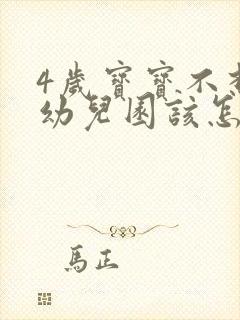 4歲寶寶不
幼兒園該怎
馬正